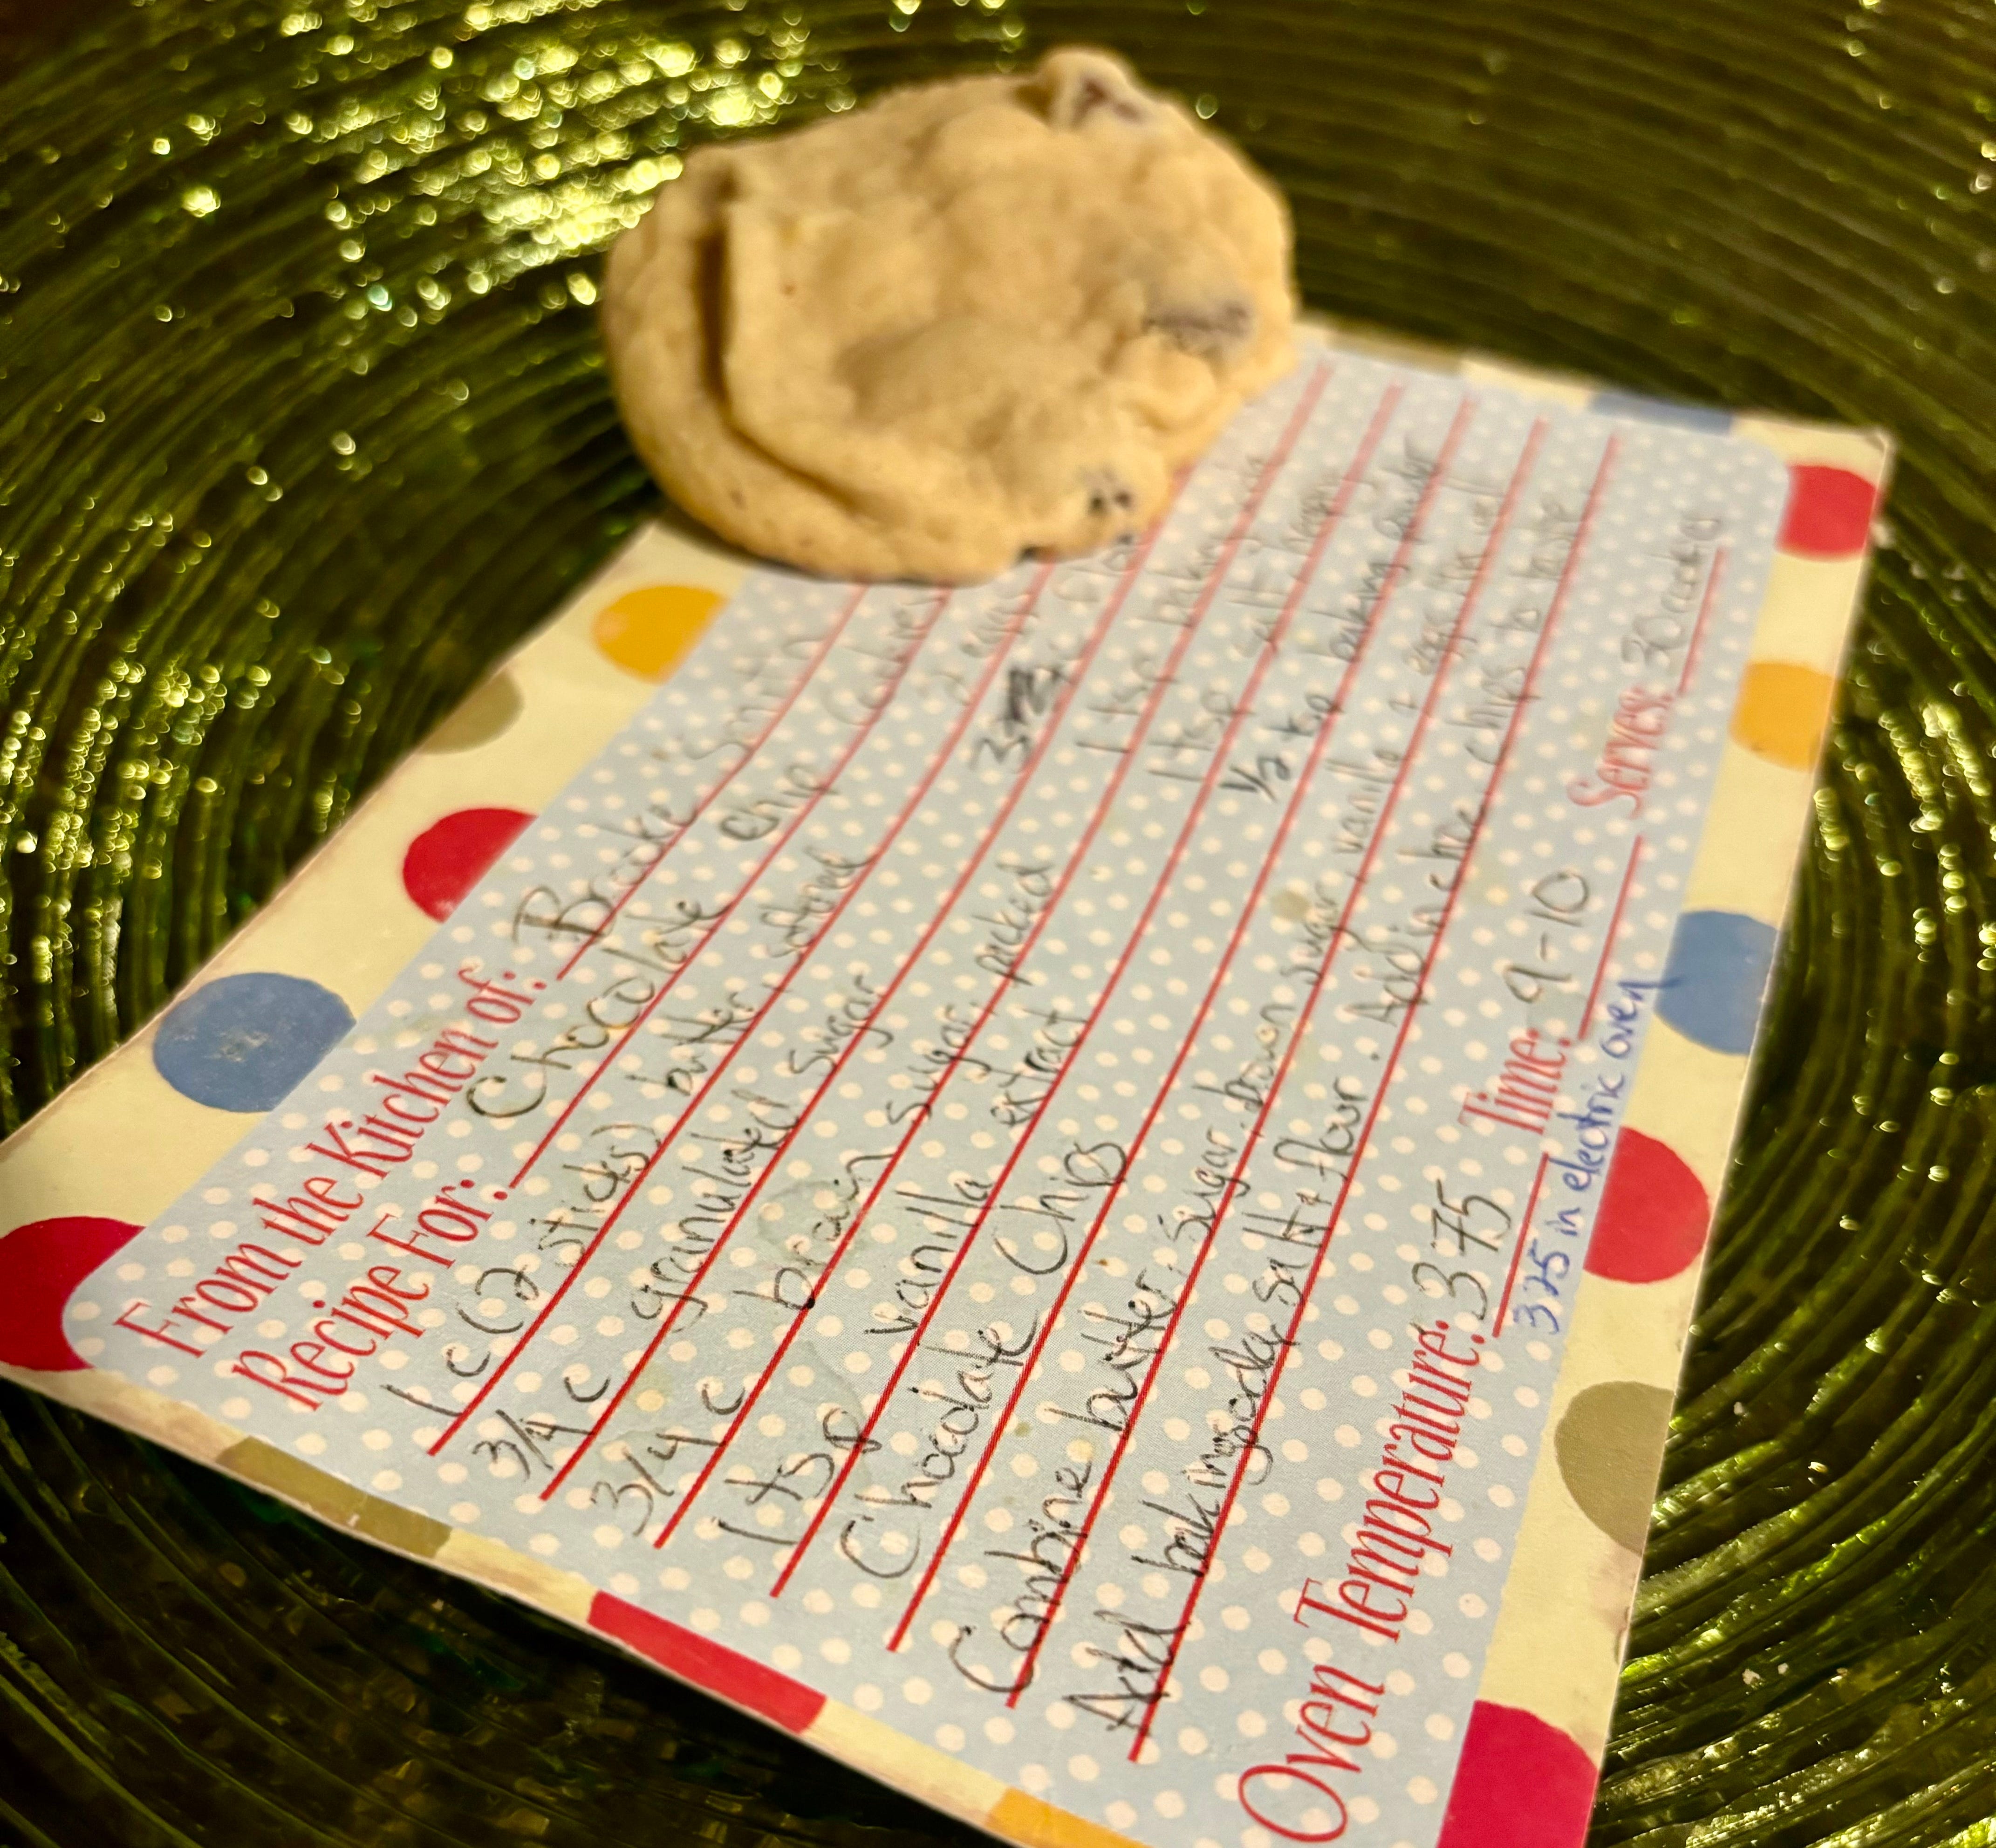 From the Kitchen of: Brooke Smith
Recipe For: Chocolate Chip Cookies
1 c (2 sticks) butter, softened 2 eggs
3/4 c granulated sugar 3
3/4 c brown sugar, packed 1 tsp baking soda
1 tsp vanilla extract 1 tsp salt
Chocolate Chips 1/2 tsp baking powder
Combine butter, sugar, brown sugar, vanilla + eggs until well
Add baking soda, salt + flour. Add in choc. chips to taste
Oven Temperature: 375 Time: 9-10 Serves: 30
325 in electric oven